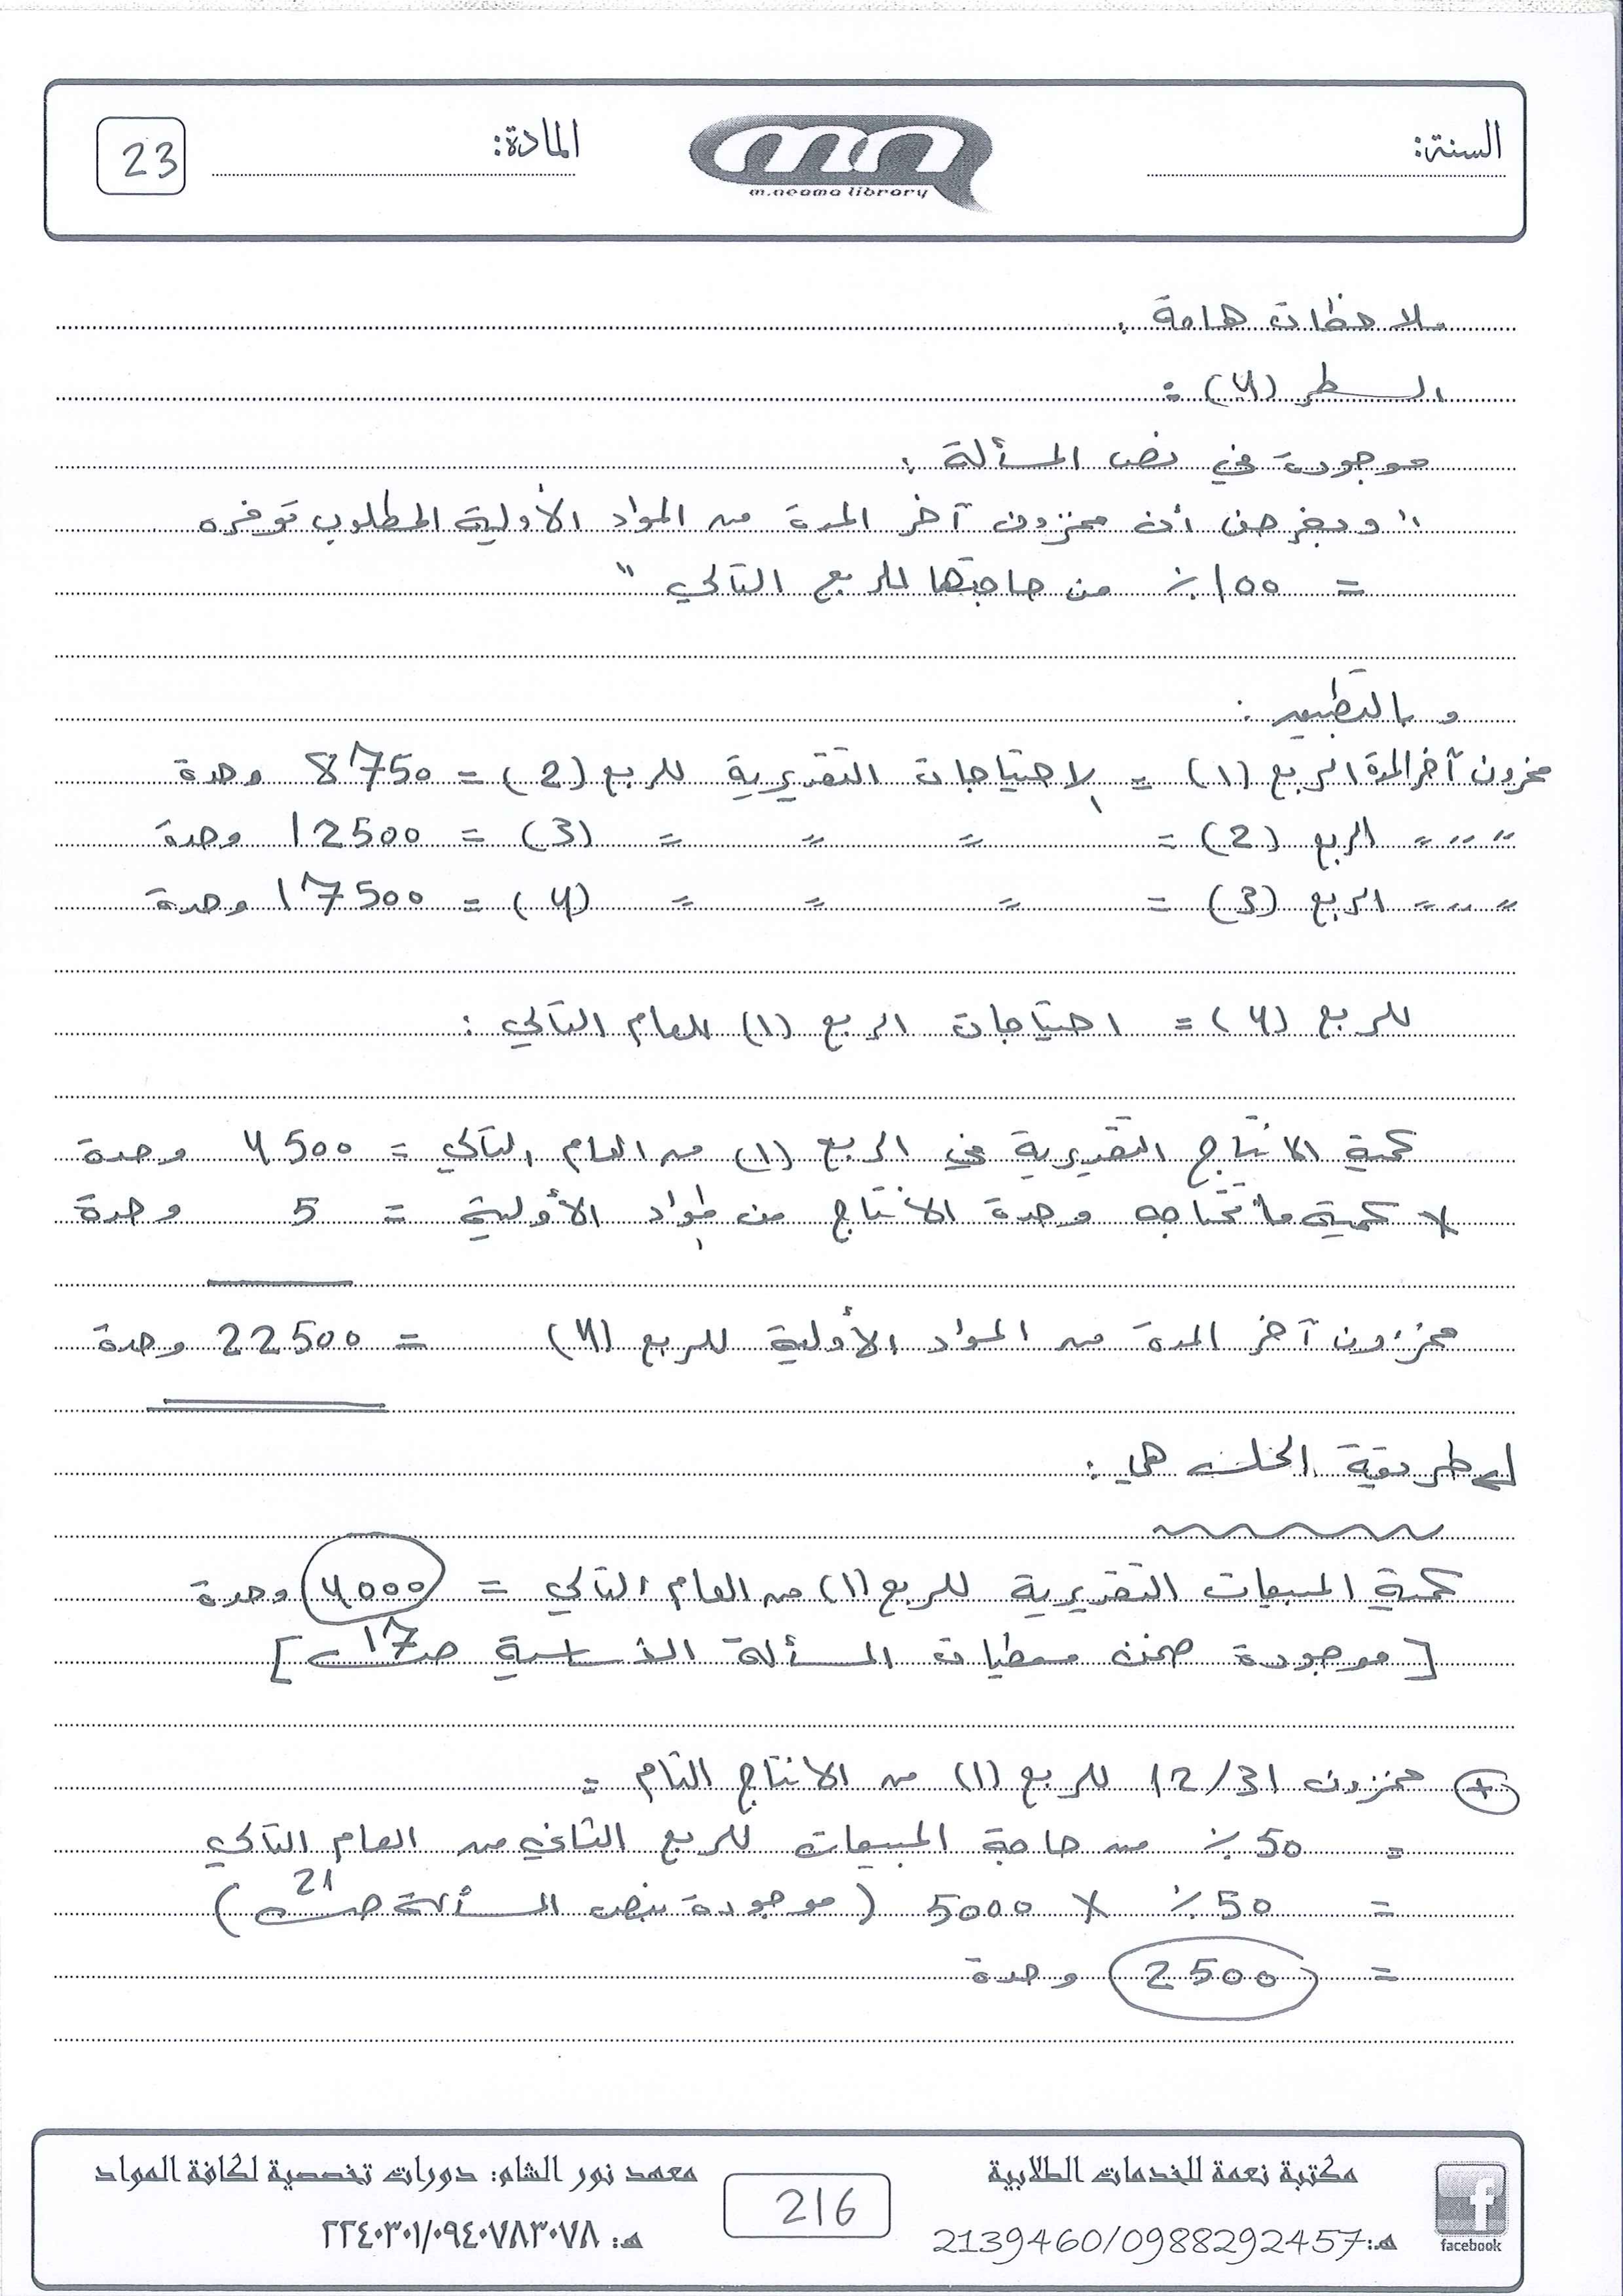 السنة:
m.neama library
المادة:
23
ملاحظات هامة :
السطر (4) :
موجودة في نص المسألة :
" وبفرض أن مخزون آخر المدة من المواد الأولية المطلوب توفره
= 100 % من حاجتها للربع التالي "
و بالتطبيق :
مخزون آخر المدة الربع (1) = الاحتياجات التقديرية للربع (2) = 8750 وحدة
" " " " الربع (2) = " " " (3) = 12500 وحدة
" " " " الربع (3) = " " " (4) = 17500 وحدة
للربع (4) = احتياجات الربع (1) للعام التالي :
كمية الانتاج التقديرية في الربع (1) من العام التالي = 4500 وحدة
× كمية ما تحتاجه وحدة الانتاج من المواد الأولية = 5 وحدة
مخزون آخر المدة من المواد الأولية للربع (4) = 22500 وحدة
طريقة الحل هي :
كمية المبيعات التقديرية للربع (1) من العام التالي = 4000 وحدة
[ موجودة ضمن معطيات المسألة الأساسية ص 17 ]
+ مخزون 12/31 للربع (1) من الانتاج التام =
= 50 % من حاجة المبيعات للربع الثاني من العام التالي
= 50 % × 5000 ( موجودة بنص المسألة ص 21 )
= 2500 وحدة
مكتبة نعمة للخدمات الطلابية
هـ: 2139460/0988292457
facebook
216
معهد نور الشام: دورات تخصصية لكافة المواد
هـ: ٢٢٤٠٣٠١/٠٩٤٠٧٨٣٠٧٨